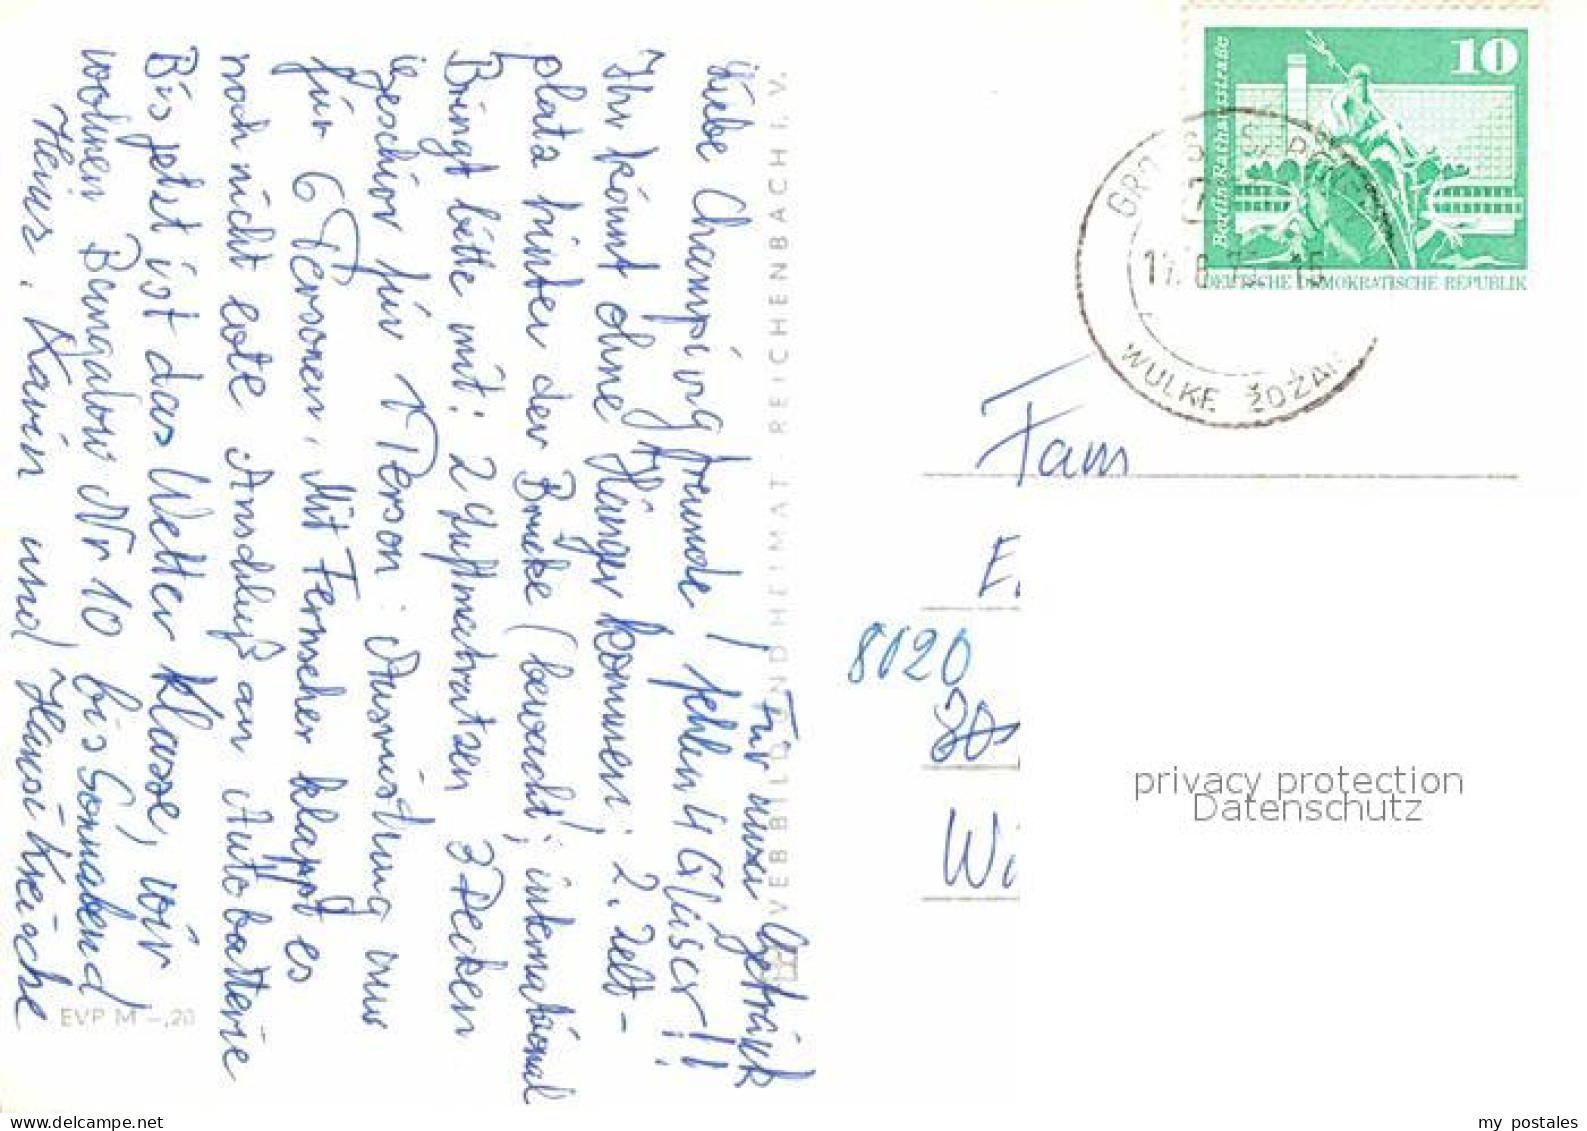 Liebe Champingfreunde!
Ihr könnt ohne Hänger kommen; 2. Zelt-
platz hinter der Brücke (bewacht; international
Bringt bitte mit: 2 Luftmatratzen 3 Decken
Geschirr für 1 Person: Ausrüstung nur
für 6 Personen. Mit Fernseher klappt es
noch nicht evtl. Anschluß an Autobatterie
Bis jetzt ist das Wetter Klasse, wir
wohnen Bungalow Nr 10 bis Sonnabend
Heinz, Karin und Hansi
Für unser Getränk
fehlen 4 Gläser!!
VEB BILD UND HEIMAT REICHENBACH I. V.
EVP M -,20
10
Berlin, Rathausstraße
DEUTSCHE DEMOKRATISCHE REPUBLIK
Fam
E.
8020
Wi
privacy protection
Datenschutz
my postales